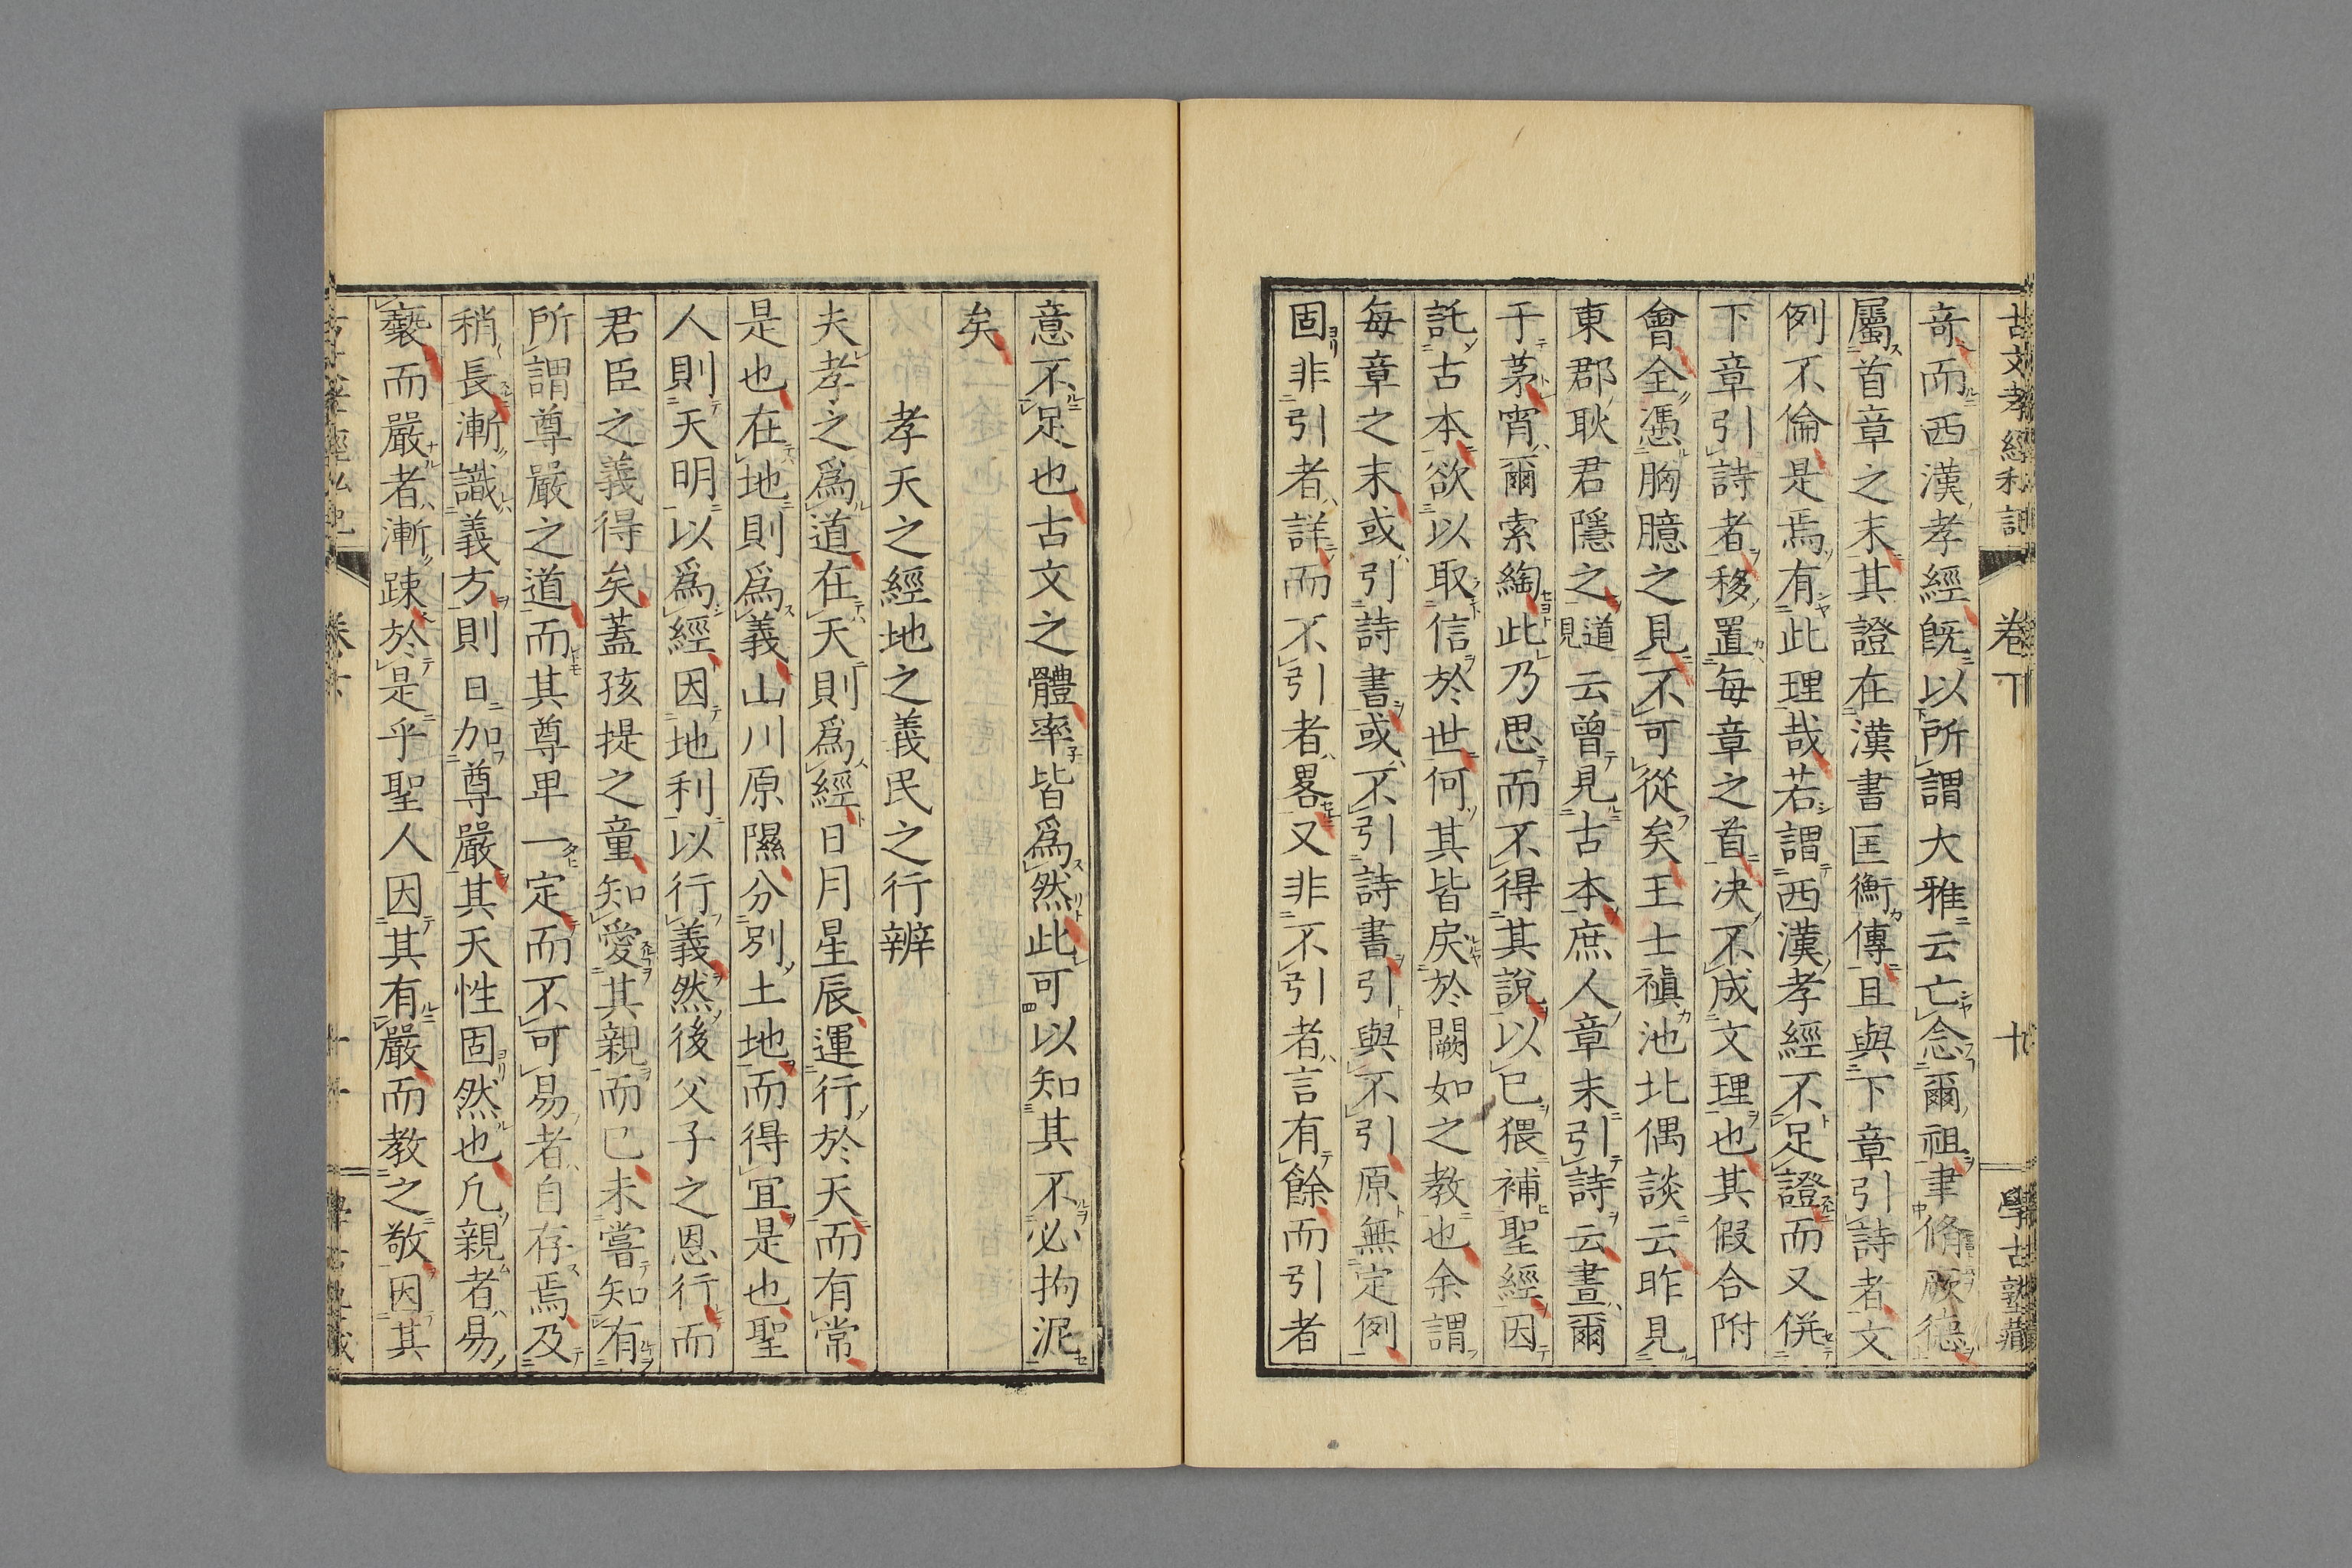 古文孝經和詶　卷下　十　學古塾藏
奇而西漢孝經既以所謂大雅云亡念爾祖聿脩厥德
屬首章之末其證在漢書匡衡傳且與下章引詩者文
例不倫是焉有此理哉若謂西漢孝經不足證而又併
下章引詩者移置每章之首决不成文理也其假合附
會全憑胸臆之見不可從矣王士禛池北偶談云昨見
東郡耿君隱之道見云曾見古本庶人章末引詩云晝爾
于茅宵爾索綯此乃思而不得其說以已猥補聖經因
託古本欲以取信於世何其皆戾於闕如之教也余謂
每章之末或引詩書或不引詩書引與不引原無定例
固非引者詳而不引者畧又非不引者言有餘而引者
意不足也古文之體率皆爲然此可以知其不必拘泥
矣
孝天之經地之義民之行辨
夫孝之爲道在天則爲經日月星辰運行於天而有常
是也在地則爲義山川原隰分別土地而得宜是也聖
人則天明以爲經因地利以行義然後父子之恩行而
君臣之義得矣蓋孩提之童知愛其親而已未嘗知有
所謂尊嚴之道而其尊卑一定而不可易者自存焉及
稍長漸識義方則日加尊嚴其天性固然也凡親者易
褻而嚴者漸踈於是乎聖人因其有嚴而教之敬因其